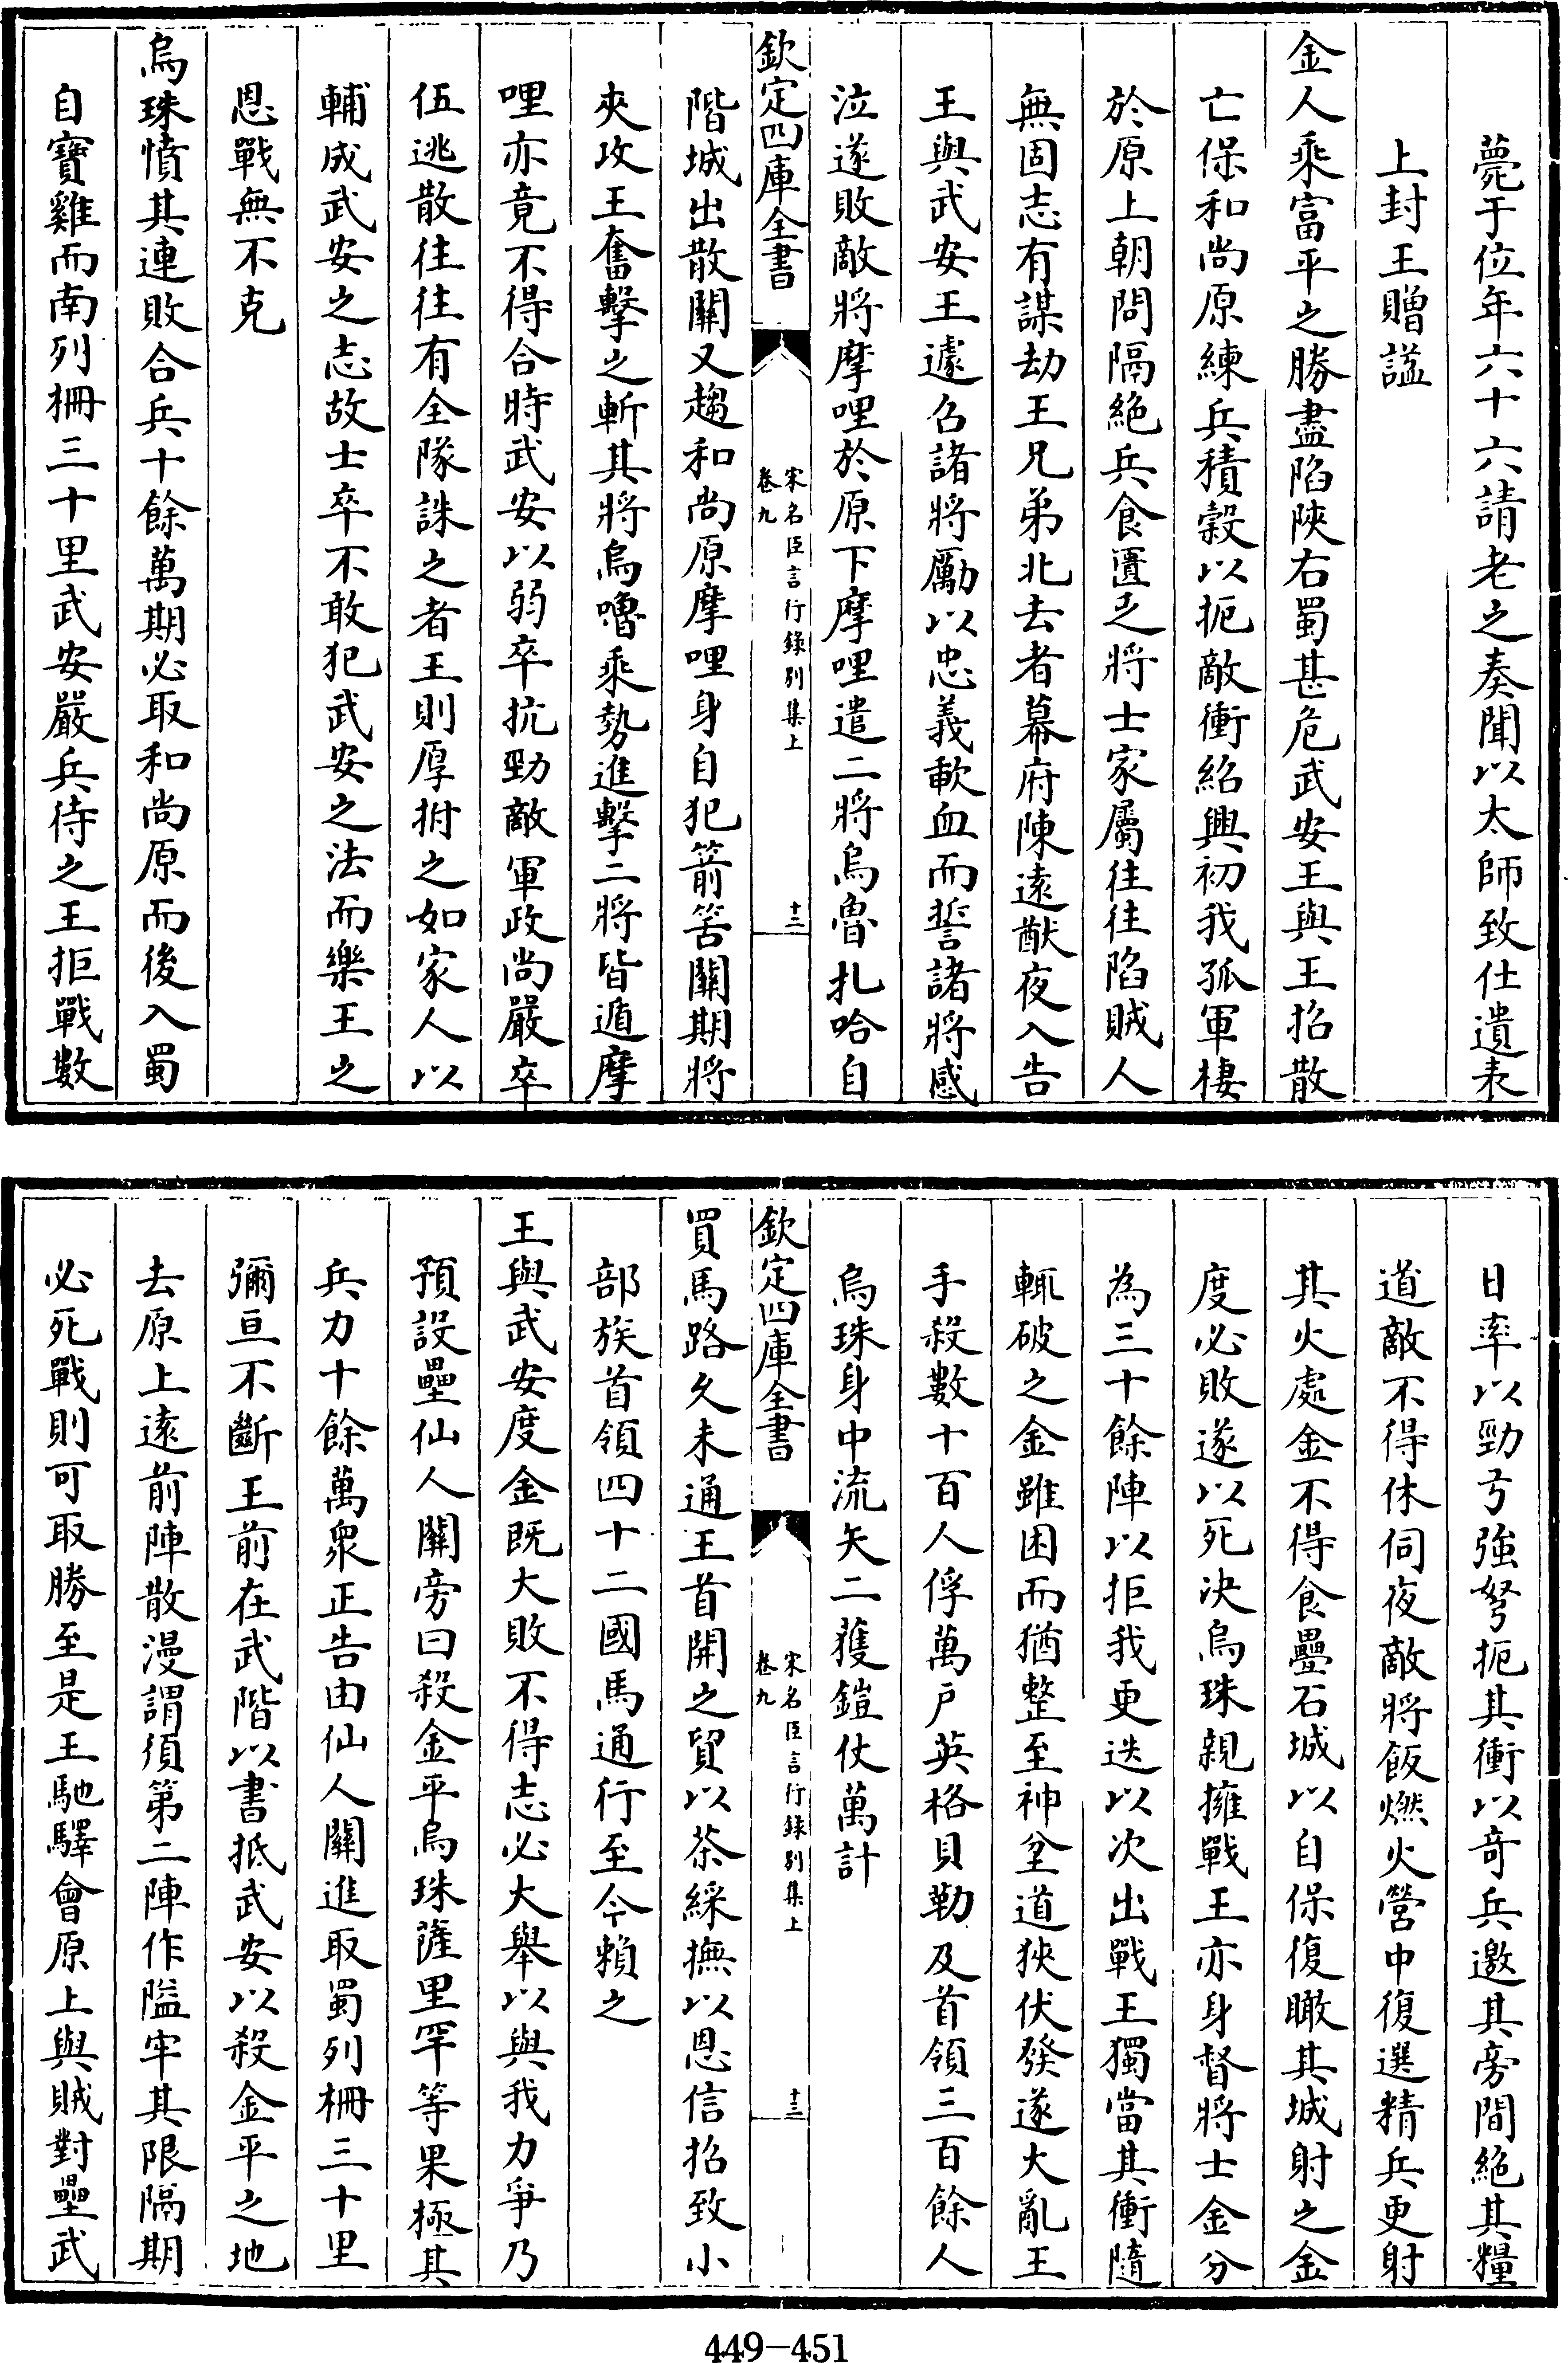 薨于位年六十六請老之奏聞以太師致仕遺表
上封王贈諡
金人乘富平之勝盡陷陜右蜀甚危武安王與王招散
亡保和尚原練兵積穀以扼敵衝紹興初我孤軍棲
於原上朝問隔絶兵食匱乏將士家屬往往陷賊人
無固志有謀劫王兄弟北去者幕府陳遠猷夜入告
王與武安王遽召諸將勵以忠義歃血而誓諸將感
泣遂敗敵將摩哩於原下摩哩遣二將烏魯扎哈自
欽定四庫全書
宋名臣言行錄别集上
卷九
十二
階城出散關又趨和尚原摩哩身自犯箭筈關期將
夾攻王奮擊之斬其將烏嚕乘勢進擊二將皆遁摩
哩亦竟不得合時武安以弱卒抗勁敵軍政尚嚴卒
伍逃散往往有全隊誅之者王則厚拊之如家人以
輔成武安之志故士卒不敢犯武安之法而樂王之
恩戰無不克
烏珠憤其連敗合兵十餘萬期必取和尚原而後入蜀
自寶雞而南列柵三十里武安嚴兵待之王拒戰數
日率以勁弓強弩扼其衝以竒兵邀其旁間絶其糧
道敵不得休伺夜敵將飯燃火營中復選精兵更射
其火處金不得食疊石城以自保復瞰其城射之金
度必敗遂以死决烏珠親擁戰王亦身督將士金分
為三十餘陣以拒我更迭以次出戰王獨當其衝隨
輒破之金雖困而猶整至神坌道狹伏發遂大亂王
手殺數十百人俘萬戶英格貝勒及首領三百餘人
烏珠身中流矢二獲鎧仗萬計
欽定四庫全書
宋名臣言行錄别集上
卷九
十三
買馬路久未通王首開之貿以茶綵撫以恩信招致小
部族首領四十二國馬通行至今賴之
王與武安度金既大敗不得志必大舉以與我力爭乃
預設壘仙人關旁曰殺金平烏珠薩里罕等果極其
兵力十餘萬衆正告由仙人關進取蜀列柵三十里
彌亘不斷王前在武階以書抵武安以殺金平之地
去原上遠前陣散漫謂須第二陣作隘牢其限隔期
必死戰則可取勝至是王馳驛會原上與賊對壘武
449-451